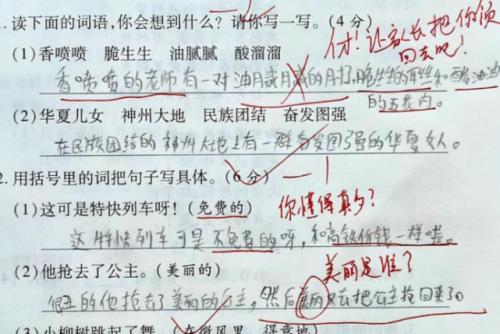 .读下面的词语,你会想到什么?请你写一写。(4分)
(1)香喷喷 脆生生 油腻腻 酸溜溜
付!让家长把你领回去吧!
香喷喷的老师有一对油腻腻的 和酸溜溜
的五脏肉。
(2)华夏儿女 神州大地 民族团结 奋发图强
在民族团结的神州大地上有一群奋发图强的华夏女人。
2.用括号里的词把句子写具体。(6分)
(1)这可是特快列车呀!(免费的)
你懂得真多?
这特快列车可是不免费的呀,和高铁价钱一样哒。
(2)他抢去了公主。(美丽的)
美丽是谁?
的他抢去了美丽的公主,然后美丽又去把公主抢回来了
(3)小柳树跳起了舞。(在微风里 得意地